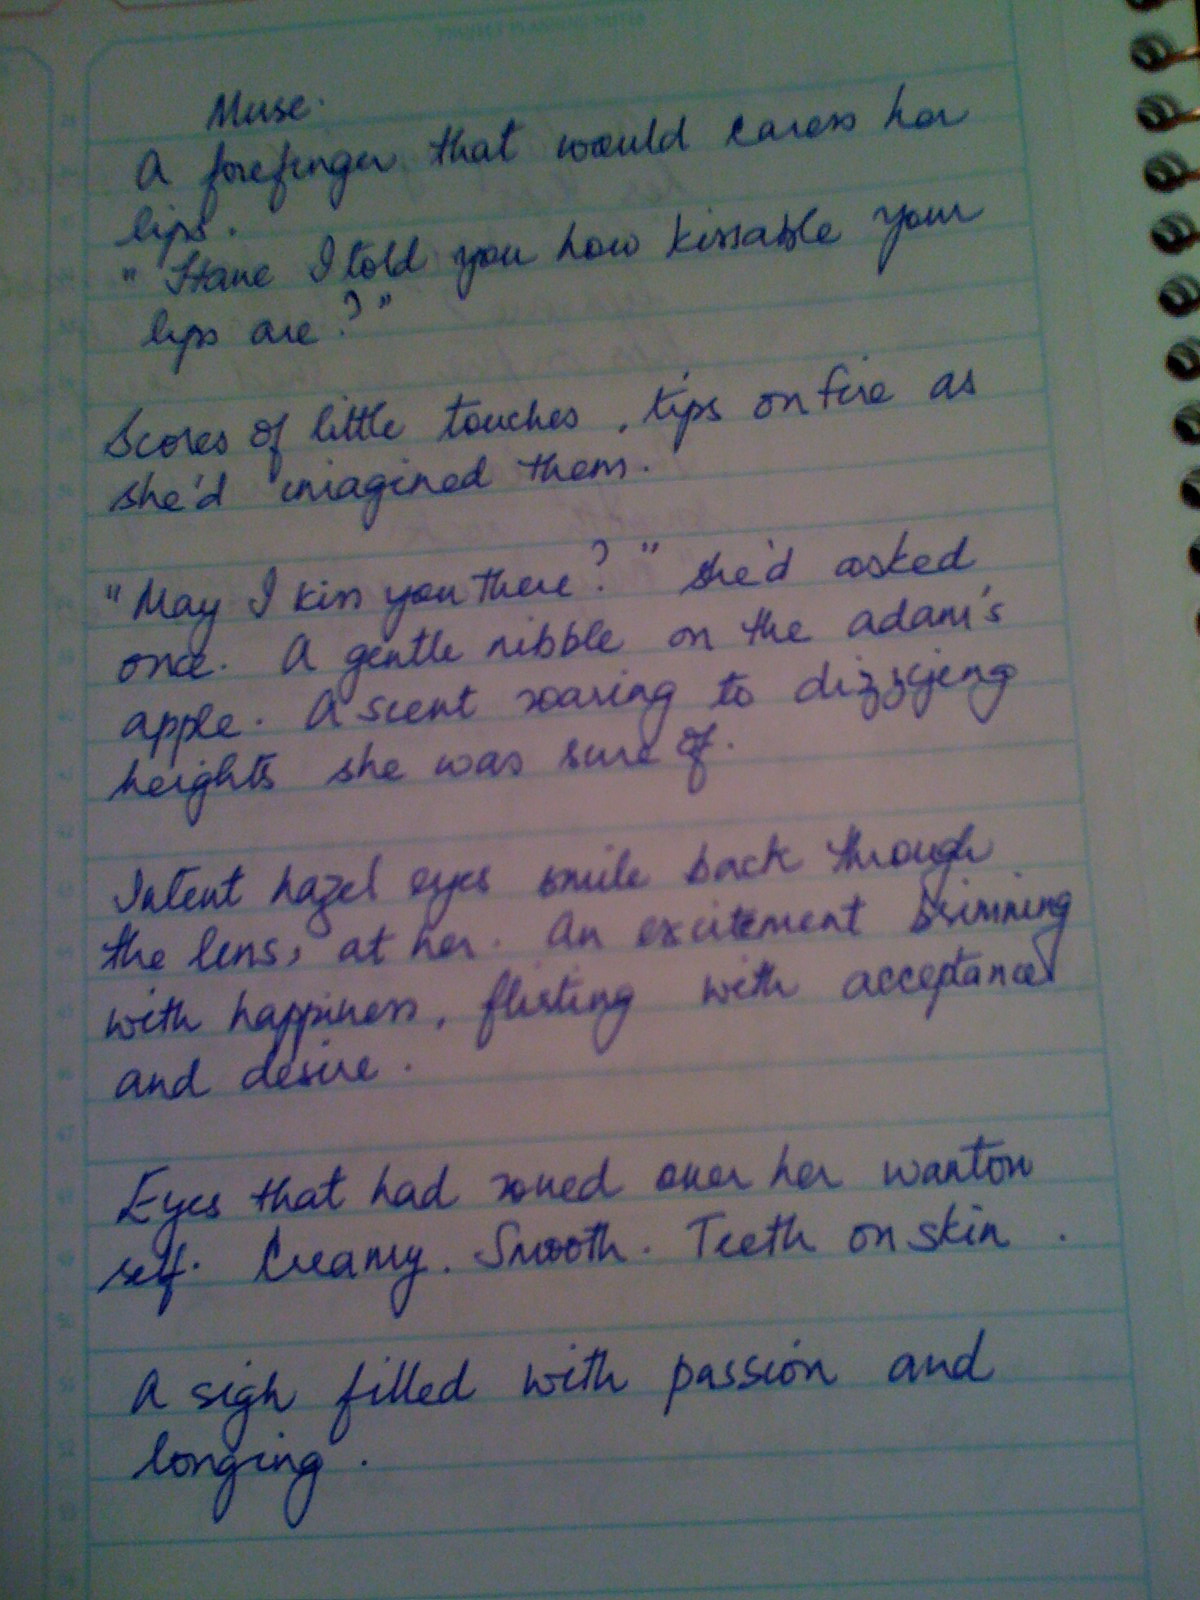 PROJECT PLANNING NOTES
Muse.
A forefinger that would caress her
lips.
"Have I told you how kissable your
lips are?"
Scores of little touches, tips on fire as
she'd imagined them.
"May I kiss you there?" she'd asked
once. A gentle nibble on the adam's
apple. A scent soaring to dizzying
heights she was sure of.
Intent hazel eyes smile back through
the lens, at her. An excitement brimming
with happiness, flirting with acceptance
and desire.
Eyes that had roved over her wanton
self. Creamy. Smooth. Teeth on skin.
A sigh filled with passion and
longing.